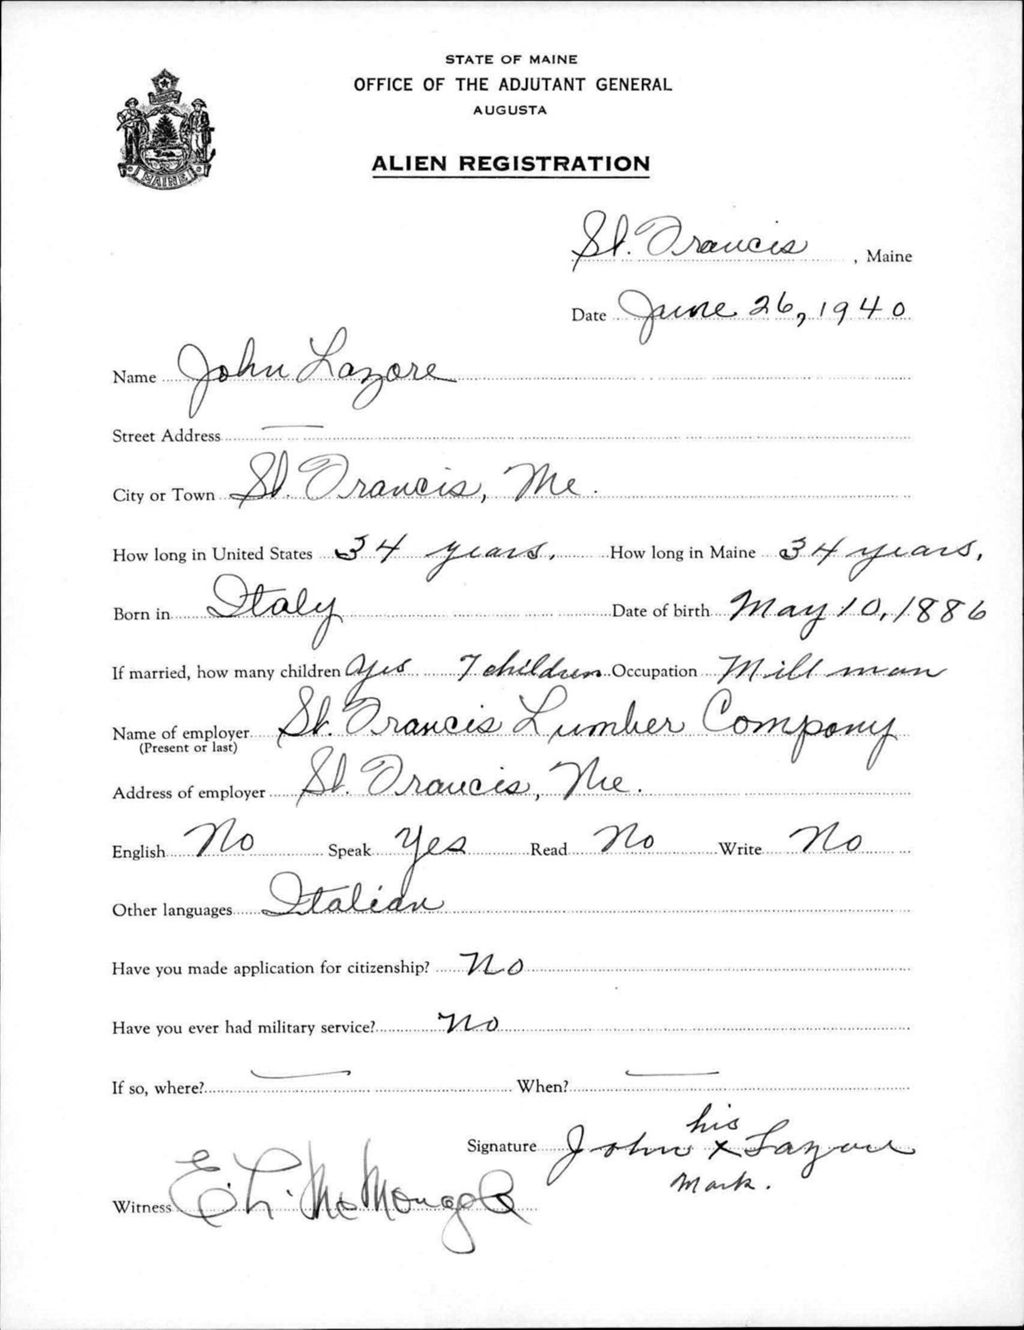 STATE OF MAINE
OFFICE OF THE ADJUTANT GENERAL
AUGUSTA
MAINE
ALIEN REGISTRATION
St. Francis, Maine
Date June 26, 1940
Name John Lazore
Street Address —
City or Town St. Francis, Me.
How long in United States 34 years. How long in Maine 34 years.
Born in Italy Date of birth May 10, 1886
If married, how many children Yes 7 children Occupation Mill man
Name of employer St. Francis Lumber Company
(Present or last)
Address of employer St. Francis, Me.
English No Speak Yes Read No Write No
Other languages Italian
Have you made application for citizenship? No
Have you ever had military service? No
If so, where? — When? —
his
Signature John x Lazore
mark.
Witness E. L.